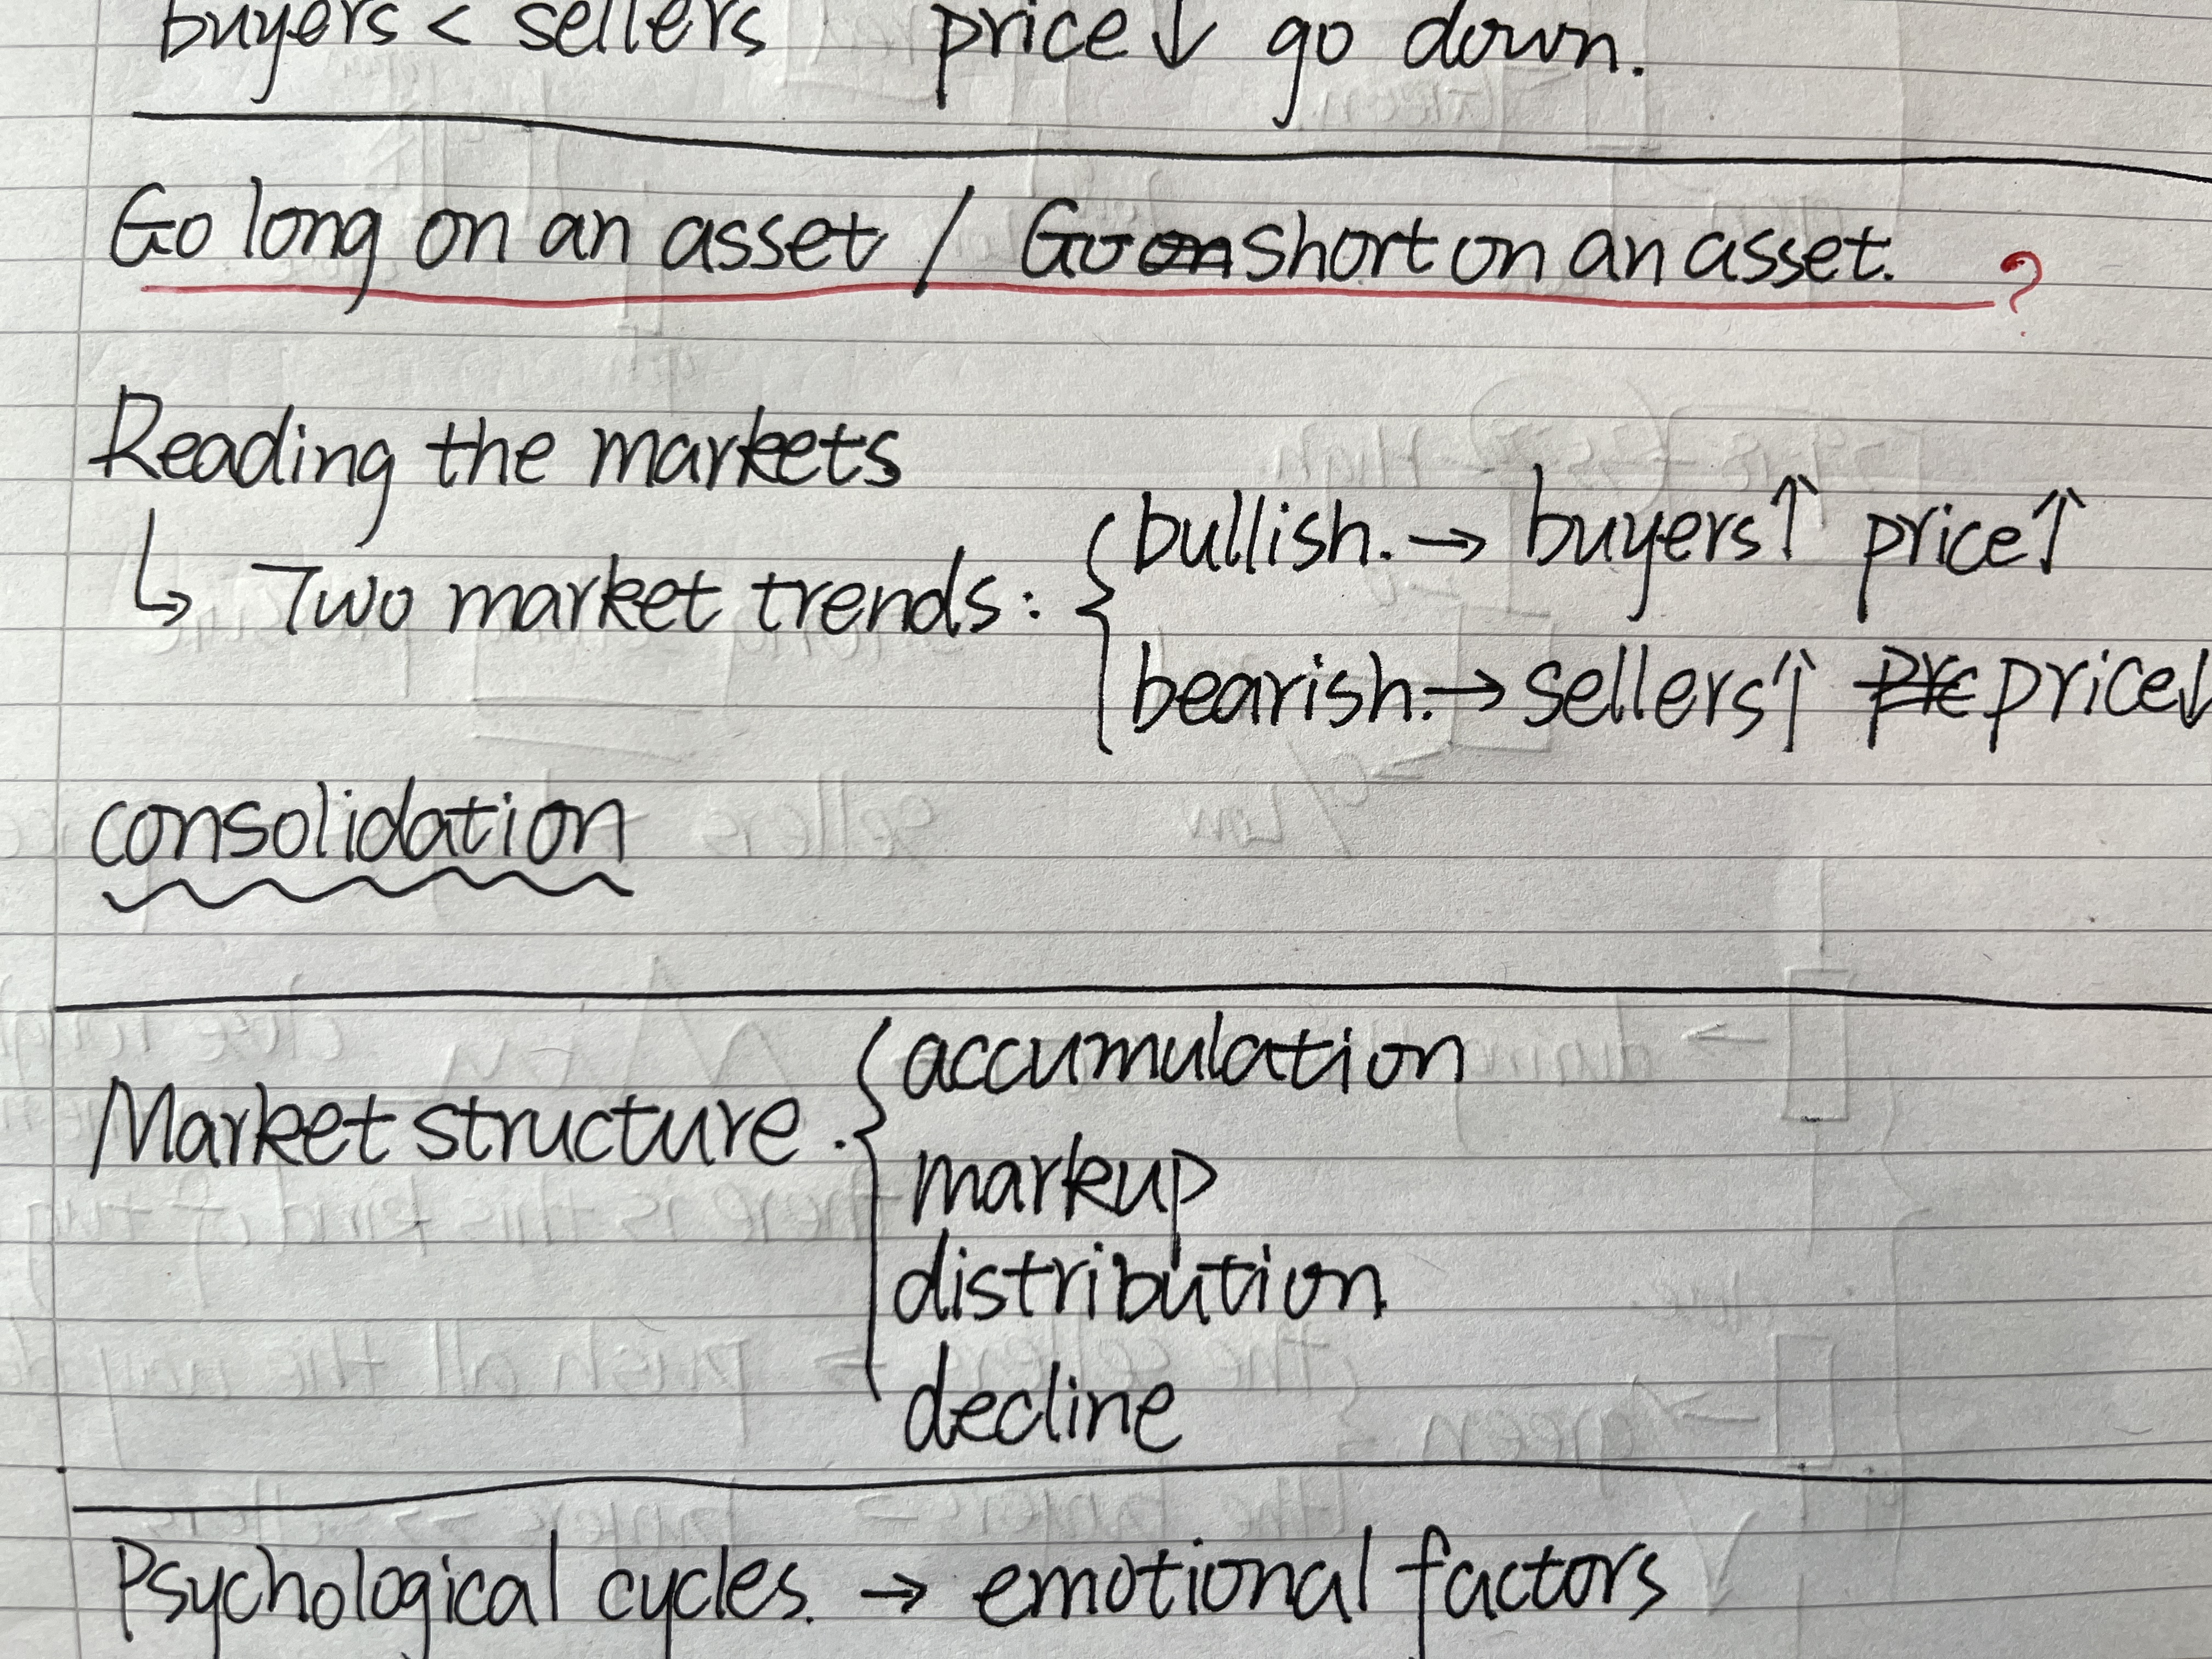 buyers < sellers price↓ go down.
Go long on an asset / Go short on an asset. ?
Reading the markets
↳ Two market trends: { bullish. → buyers↑ price↑
bearish. → sellers↑ price↓
consolidation
Market structure. { accumulation
markup
distribution
decline
Psychological cycles. → emotional factors